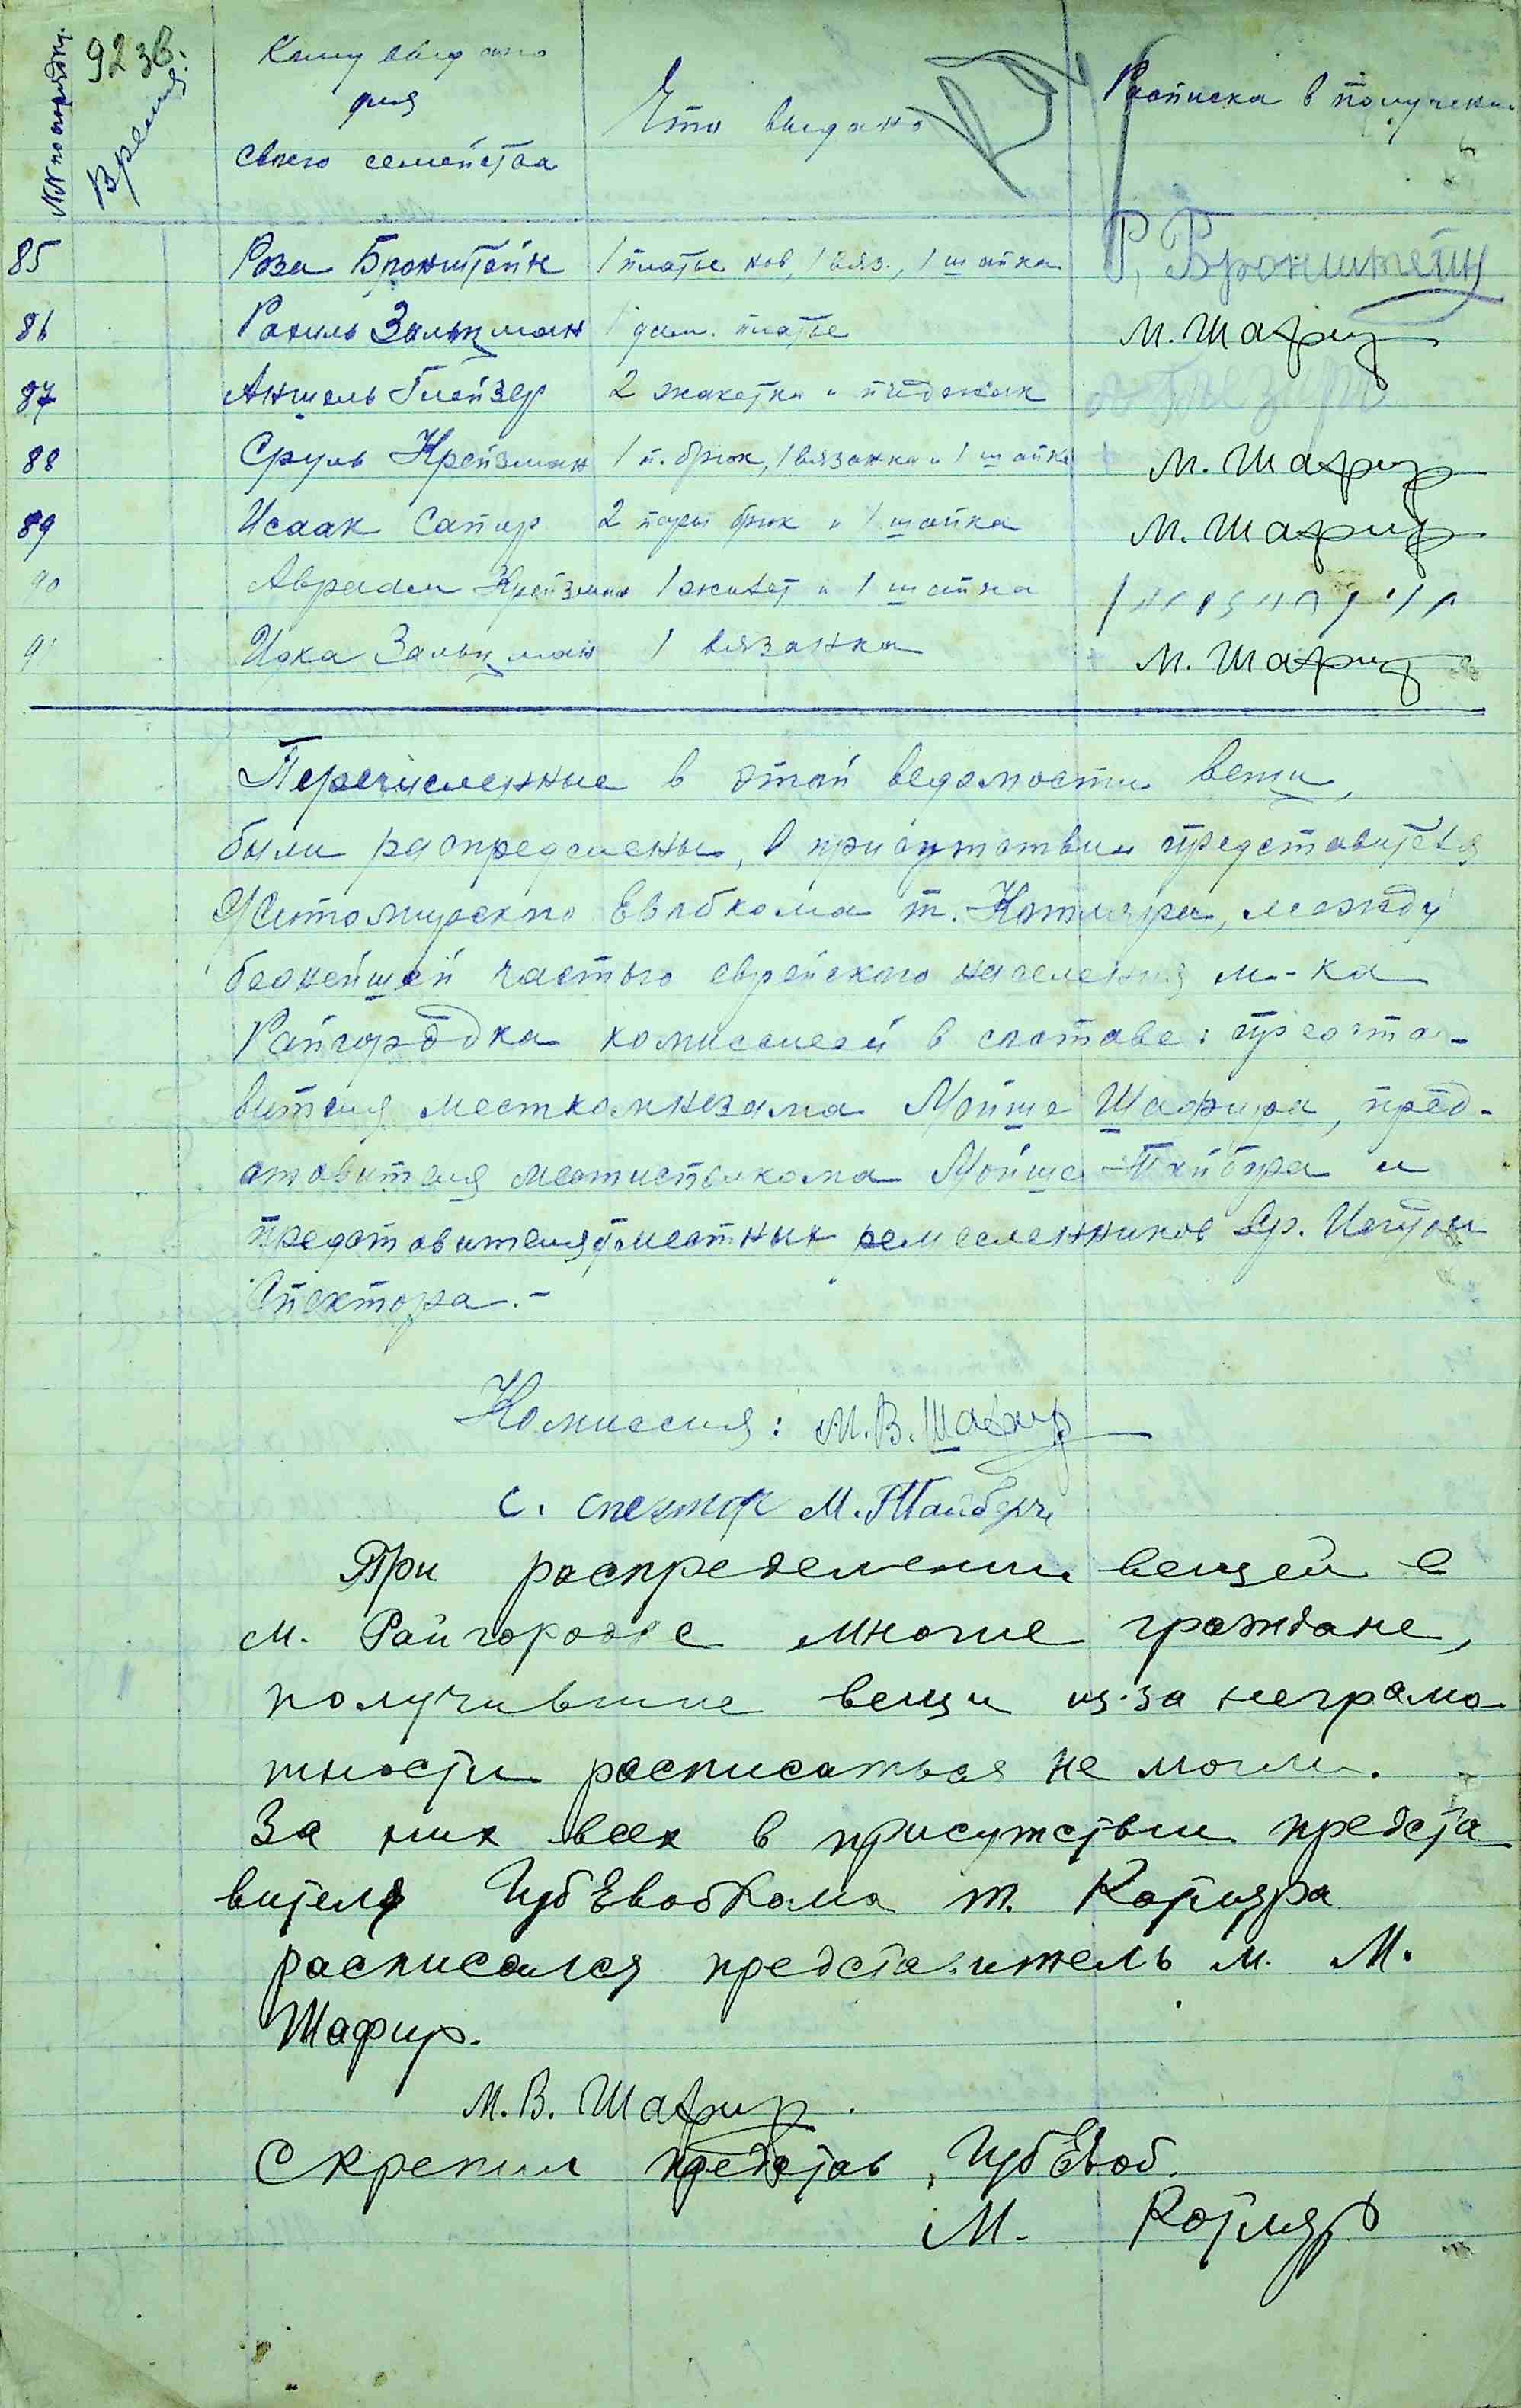 NN по порядку.
92 зв.
Время
Кому выдано
для
своего семейства
Что выдано
Расписка в получении
85 Роза Бронштейн 1 платье нов, 1 вяз., 1 шапка Р. Бронштейн
86 Рахиль Зальцман 1 дам. платье М. Шафир
87 Аншель Глейзер 2 жакетки и пиджак
88 Сруль Крейзман 1 п. брюк, 1 вязанка и 1 шапка М. Шафир
89 Исаак Сапир 2 пары брюк и 1 шапка М. Шафир
90 Авраам Крейзман 1 жилет и 1 шапка
91 Иока Зальцман 1 вязанка М. Шафир
Перечисленные в этой ведомости вещи,
были распределены, в присутствии представителя
Житомирского Евобкома т. Котляра, между
беднейшей частью еврейского населения м-ка
Райгородка комиссией в составе: предста-
вителя месткомнезама Мойше Шафира, пред-
ставителя местисполкома Мойше Тайбера и
представителя местных ремесленников
Спектора.-
Комиссия: М.В. Шафир
С. Спектор М. Тайберг
При распределении вещей в
м. Райгородке многие граждане,
получившие вещи из-за неграмо-
тности расписаться не могли.
За них всех в присутствии предста
вителя ГубЕвобкома т. Котляра
расписался представитель м. М.
Шафир.
М.В. Шафир.
Скрепил представ. ГубЕвоб.
М. Котляр